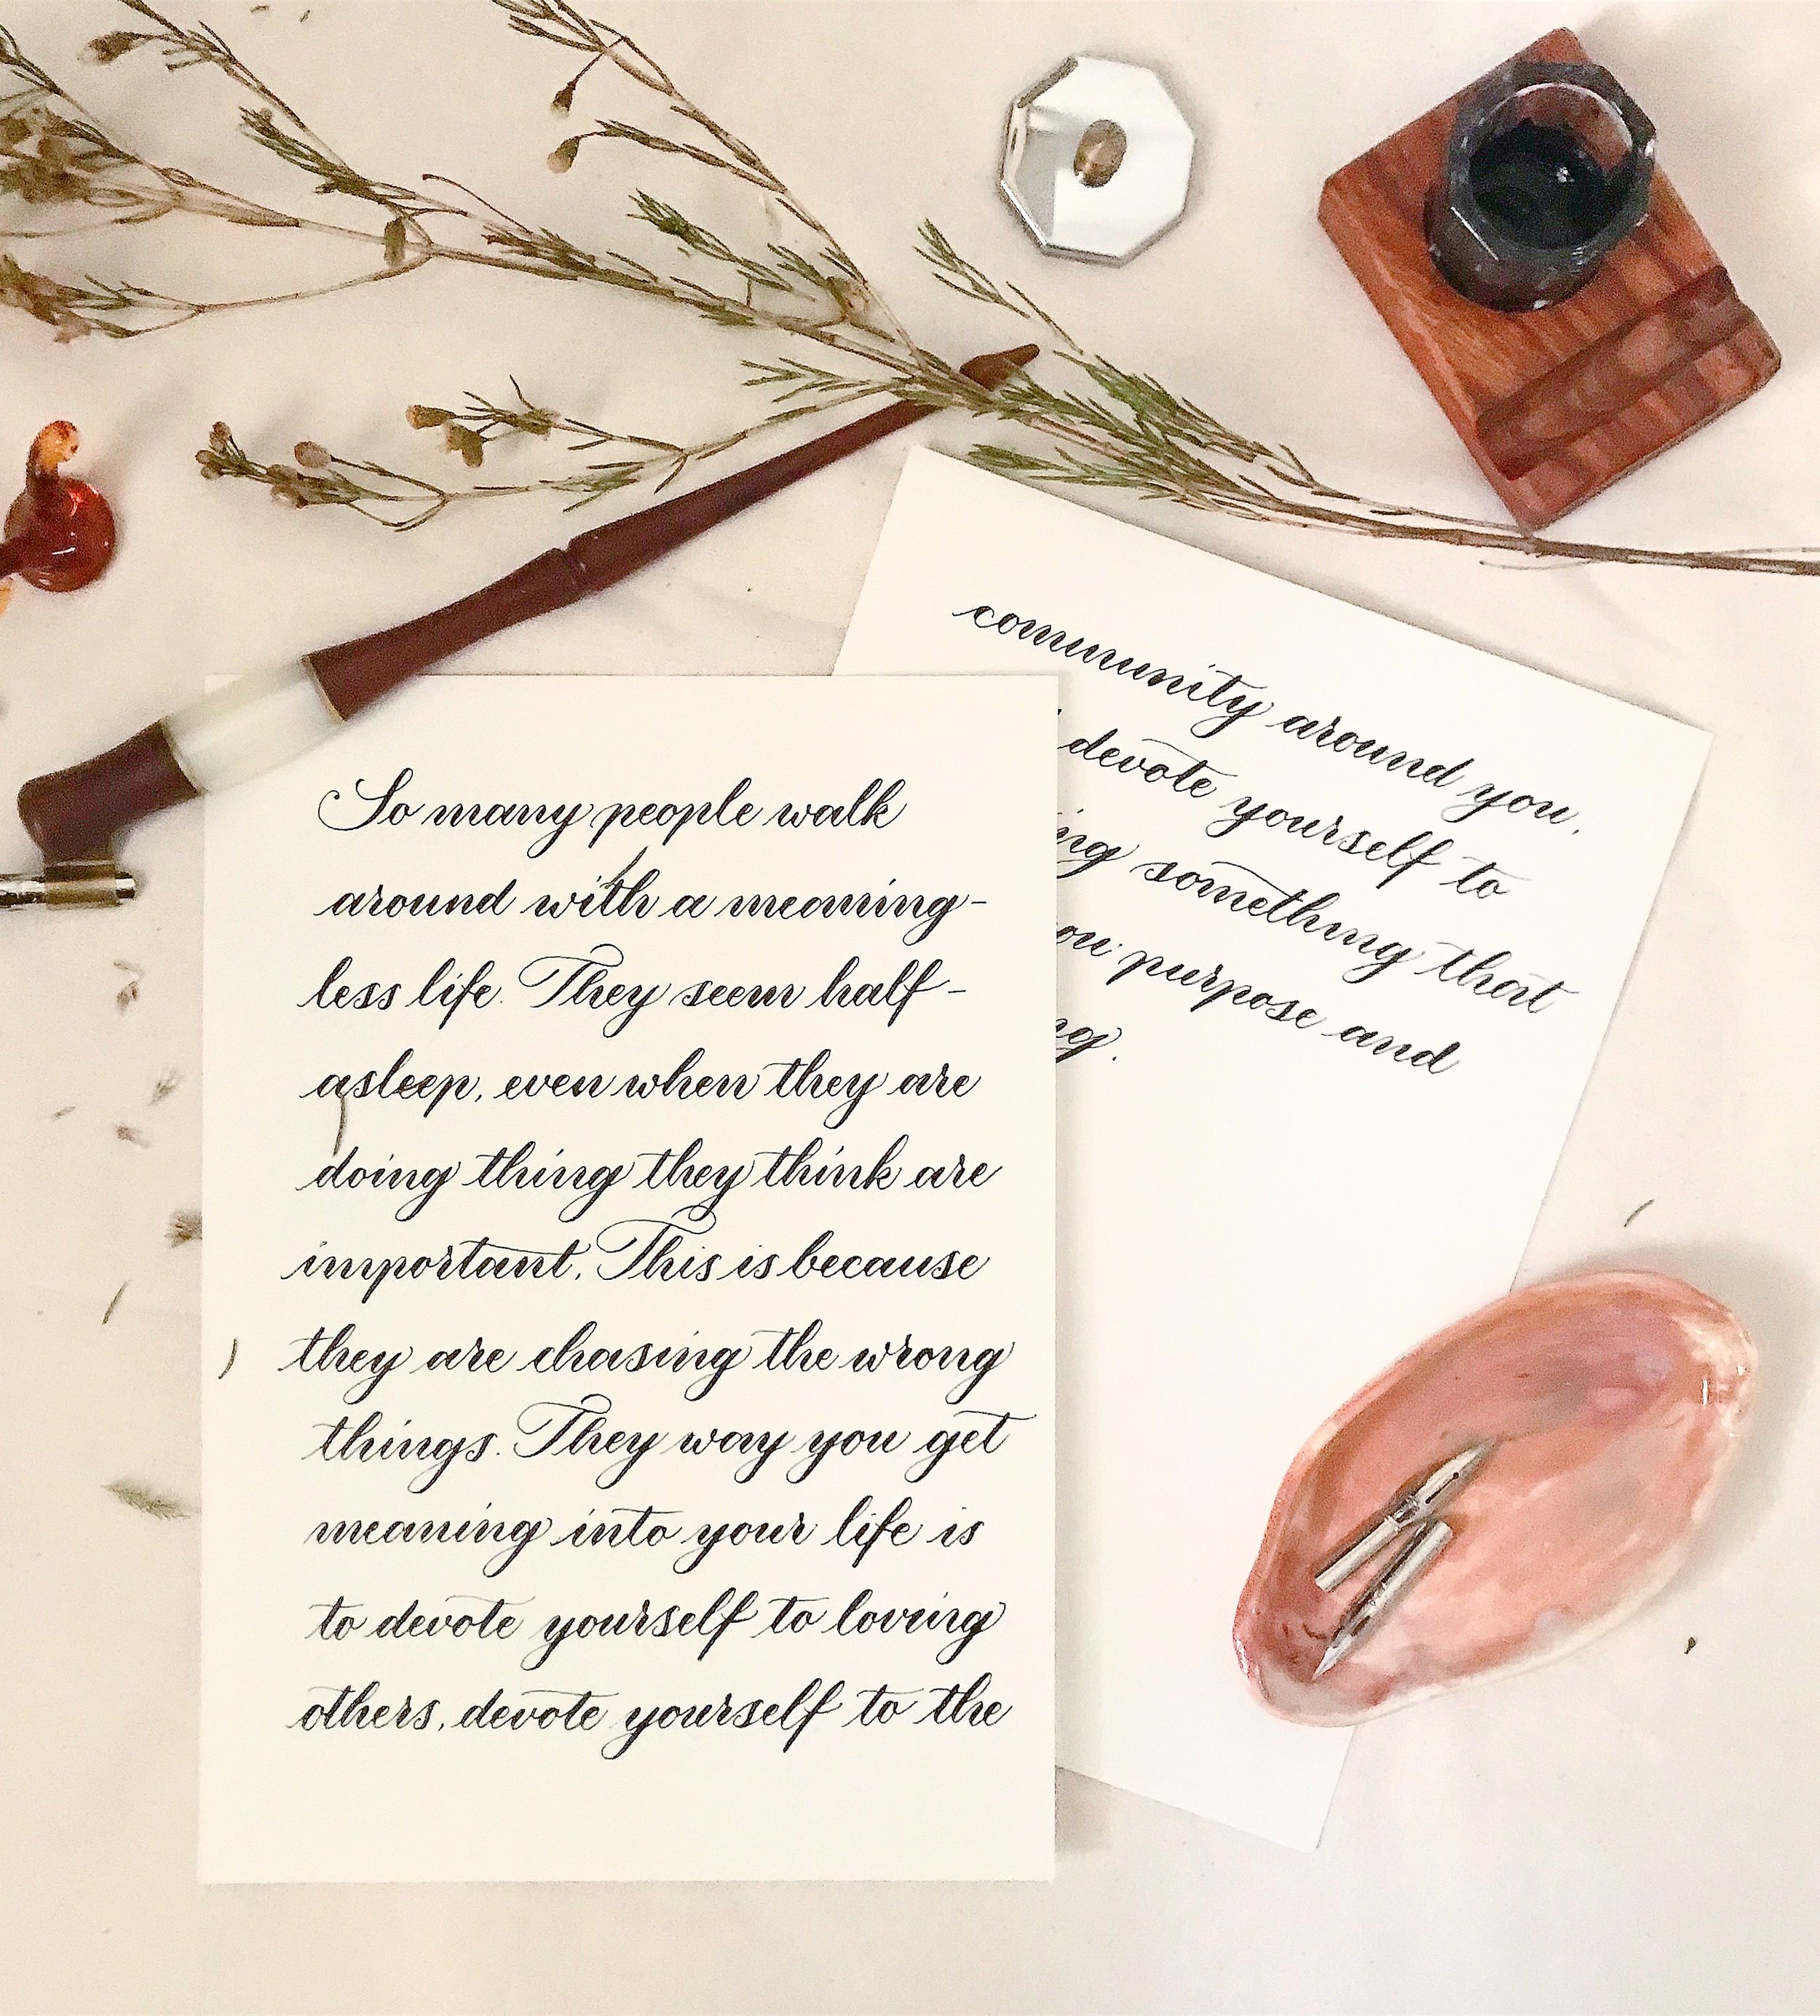 So many people walk
around with a meaning-
less life. They seem half-
asleep, even when they are
doing thing they think are
important. This is because
they are chasing the wrong
things. They way you get
meaning into your life is
to devote yourself to loving
others, devote yourself to the
community around you,
devote yourself to
ing something that
ou purpose and
ng.